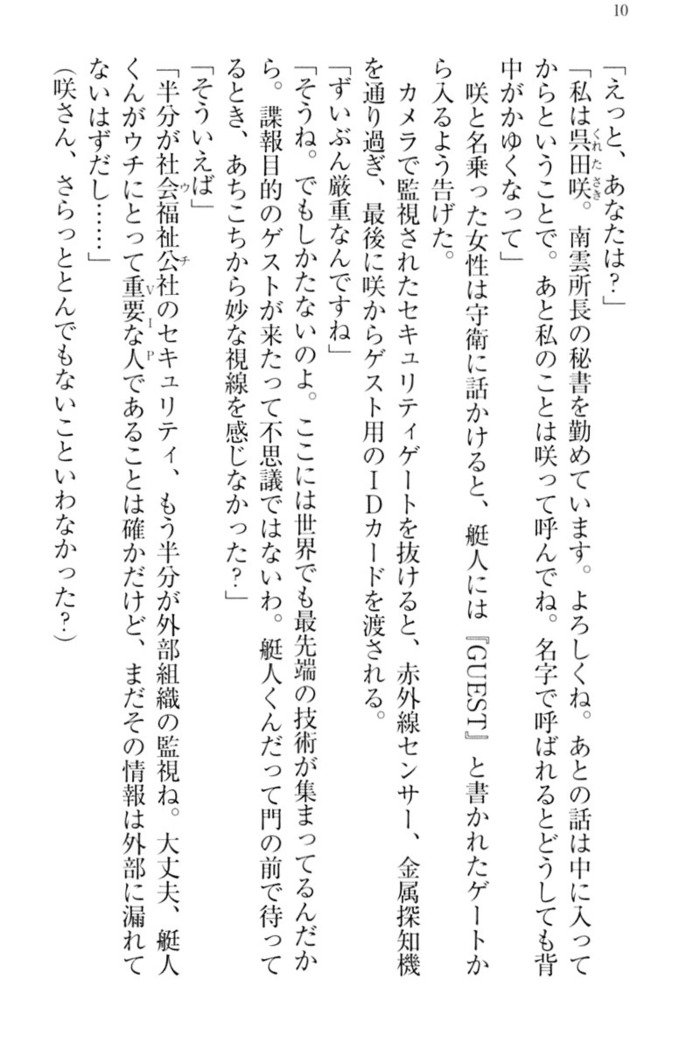 10
「えっと、あなたは？」
「私は呉田咲。南雲所長の秘書を勤めています。よろしくね。あとの話は中に入って
からということで。あと私のことは咲って呼んでね。名字で呼ばれるとどうしても背
中がかゆくなって」
　咲と名乗った女性は守衛に話かけると、艇人には『GUEST』と書かれたゲートか
ら入るよう告げた。
　カメラで監視されたセキュリティゲートを抜けると、赤外線センサー、金属探知機
を通り過ぎ、最後に咲からゲスト用のＩＤカードを渡される。
「ずいぶん厳重なんですね」
「そうね。でもしかたないのよ。ここには世界でも最先端の技術が集まってるんだか
ら。諜報目的のゲストが来たって不思議ではないわ。艇人くんだって門の前で待って
るとき、あちこちから妙な視線を感じなかった？」
「そういえば」
「半分が社会福祉公社のセキュリティ、もう半分が外部組織の監視ね。大丈夫、艇人
くんがウチにとって重要な人であることは確かだけど、まだその情報は外部に漏れて
ないはずだし……」
（咲さん、さらっととんでもないこといわなかった？）
くれたさき
ウチ
ＶＩＰ